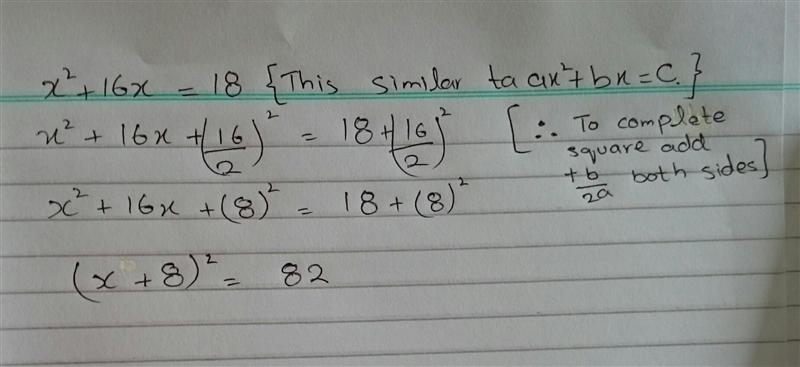 x² + 16x = 18 {This similar ta ax² + bx = C.}
x² + 16x + (16/2)² = 18 + (16/2)² [∴ To complete
square add
+b/2a both sides]
x² + 16x + (8)² = 18 + (8)²
(x + 8)² = 82